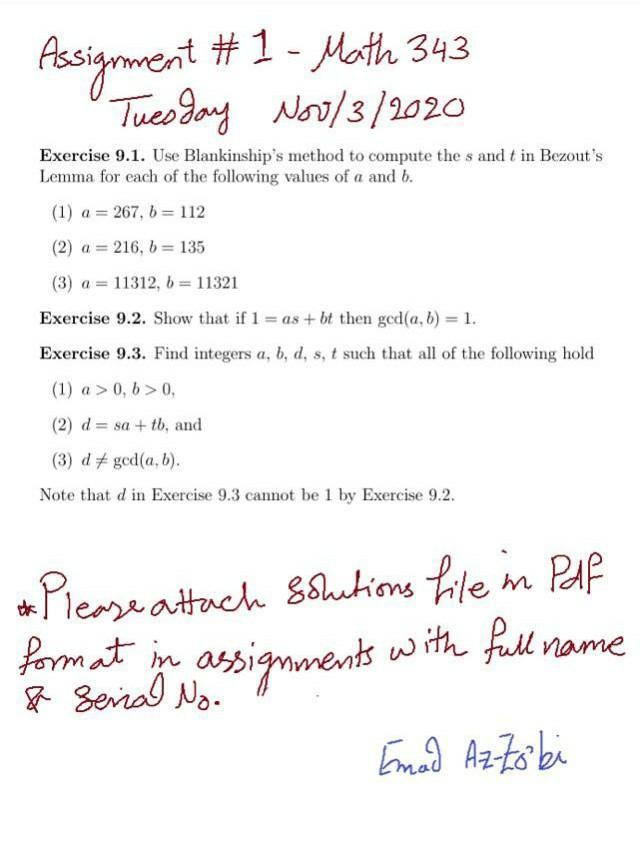 Assignment # 1 - Math 343
Tuesday Nov/3/2020
Exercise 9.1. Use Blankinship's method to compute the s and t in Bezout's
Lemma for each of the following values of a and b.
(1) a = 267, b = 112
(2) a = 216, b = 135
(3) a = 11312, b = 11321
Exercise 9.2. Show that if 1 = as + bt then gcd(a, b) = 1.
Exercise 9.3. Find integers a, b, d, s, t such that all of the following hold
(1) a > 0, b > 0,
(2) d = sa + tb, and
(3) d ≠ gcd(a, b).
Note that d in Exercise 9.3 cannot be 1 by Exercise 9.2.
* Please attach solutions file in Pdf
format in assignments with full name
& Serial No.
Emad Az-Zo'bi